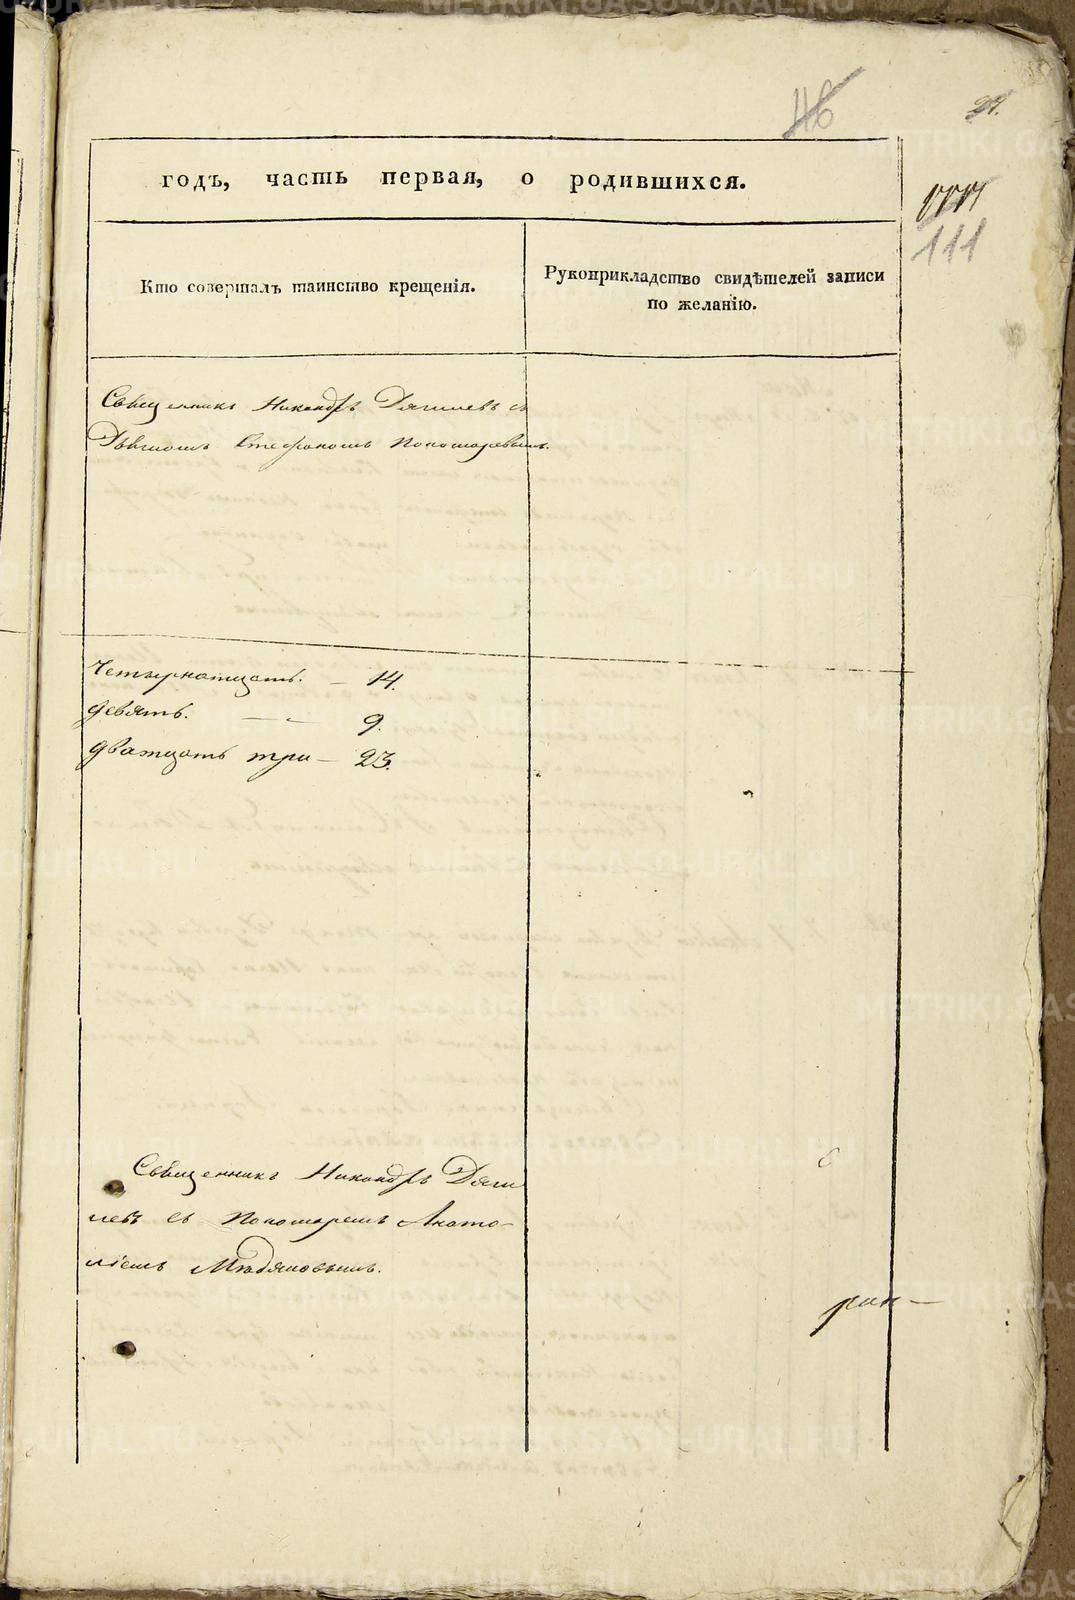 46
27.
111
111
годъ, часть первая, о родившихся.
Кто совершалъ таинство крещенія.
Рукоприкладство свидѣтелей записи
по желанію.
Священникъ Никандръ Дягилевъ съ
Дьячкомъ Стефаномъ Пономаревымъ.
Четырнатцать. — 14.
девять. — — 9.
дватцать три — 23.
Священникъ Никандръ Дяги
левъ съ Пономаремъ Анато-
ліемъ
METRIKI.GASO-URAL.RU